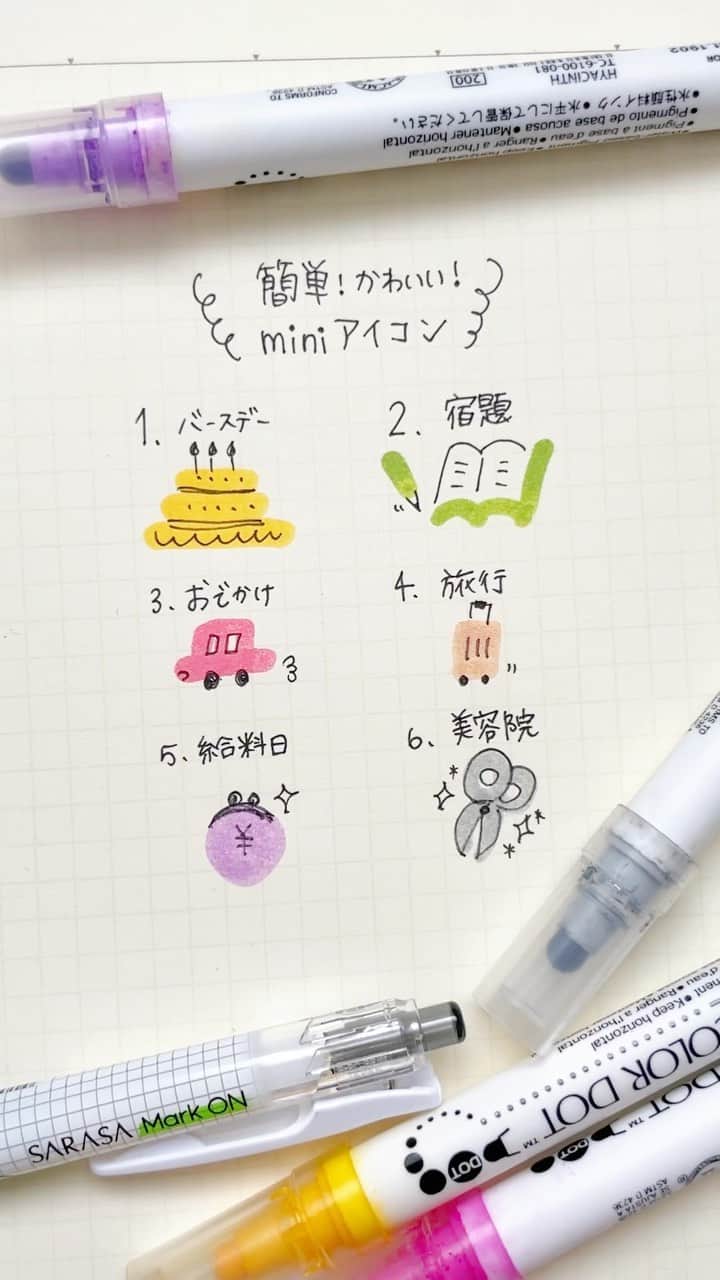 HYACINTH
TC-6100-081
200
CONFORMS TO
ASTM D 4236
●水性顔料インク ●水平にして保管してください。
●Pigmento de base acuosa ●Mantener horizontal
à base d'eau ●Ranger à l'horizontal
簡単！かわいい！
miniアイコン
1. バースデー
2. 宿題
3. おでかけ
4. 旅行
5. 給料日
¥
6. 美容院
SARASA Mark ON
d'eau ●Ranger à l'horizontal
●Keep horizontal
COLOR DOT™
DOT
DOT™
ASTM D 4236